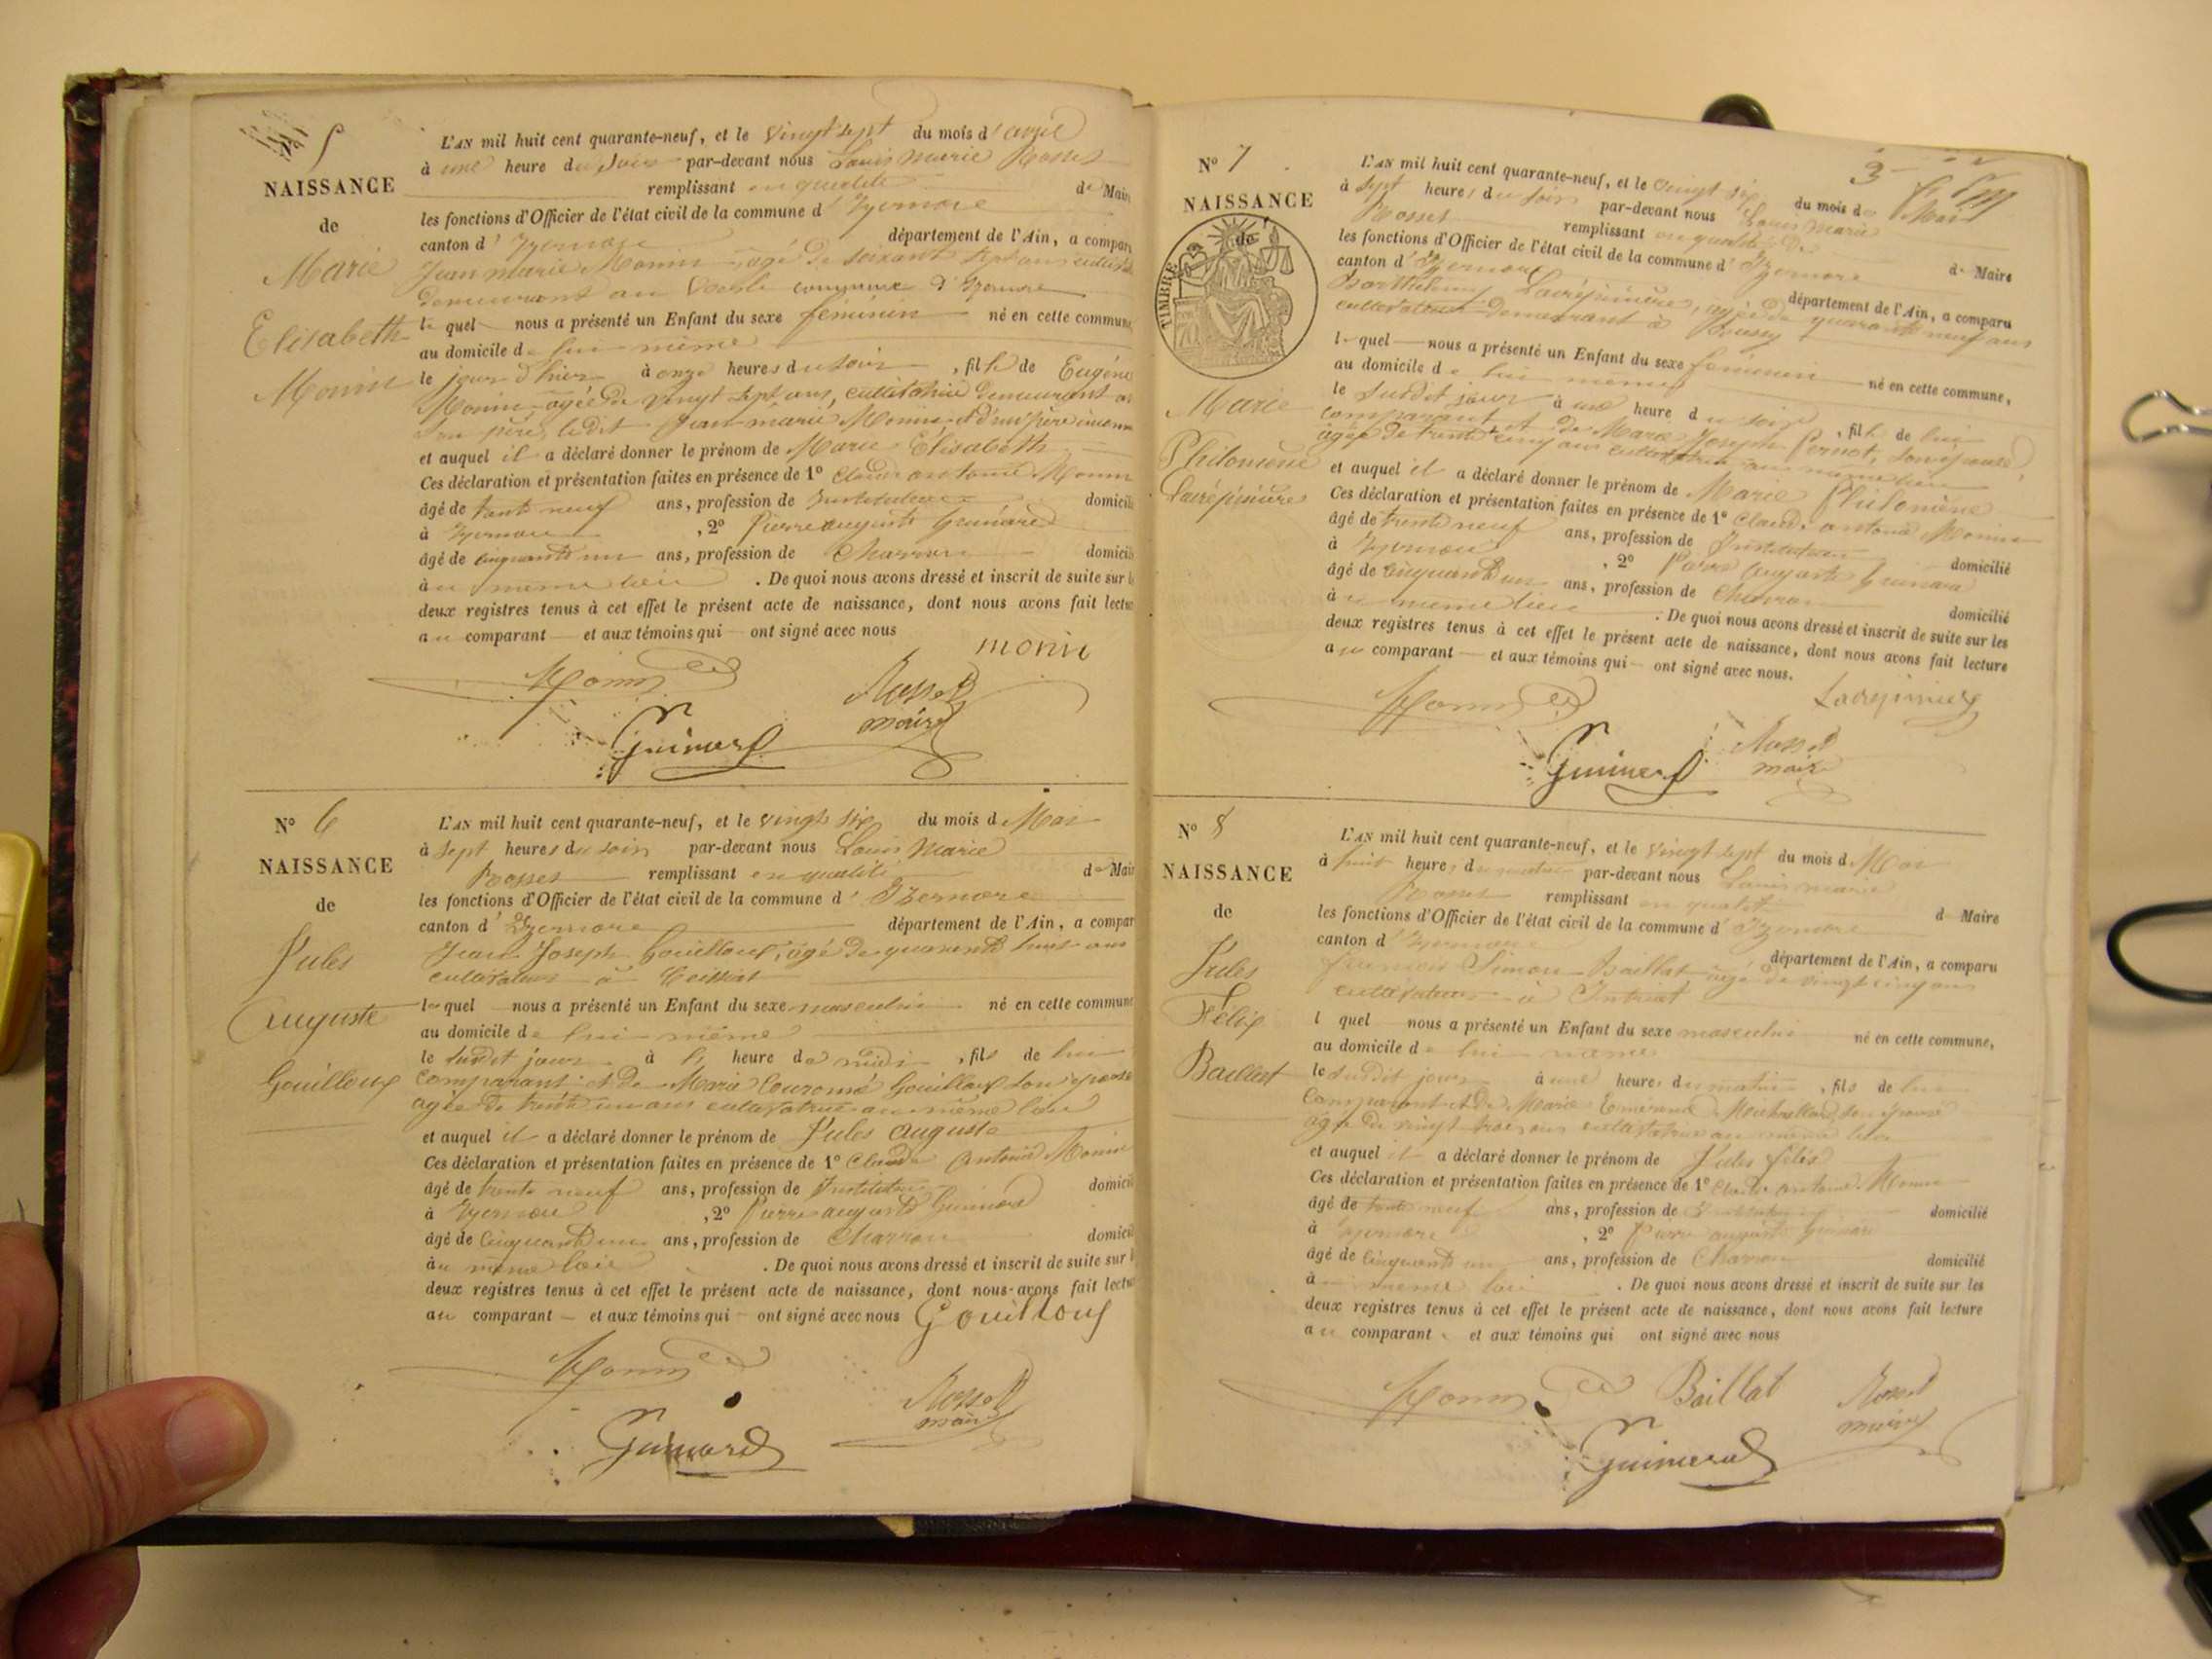 N° 5
NAISSANCE
de
Marie
Elisabeth
Monin
L'AN mil huit cent quarante-neuf, et le vingt sept du mois d'avril
à une heure du soir par-devant nous Louis Marie Rosset
remplissant en qualité de Maire
les fonctions d'Officier de l'état civil de la commune d'Izernore
canton d'Izernore département de l'Ain, a compar
Jean marie Monin âgé de soixante sept ans
demeurant au commune d'Izernore
le quel nous a présenté un Enfant du sexe féminin né en cette commune
au domicile de lui même
le jour d'hier à onze heures du soir, fille de Eugénie
Monin, agée de vingt sept ans, cultivatrice demeurant
son père, le dit Jean marie Monin et d'un père inconnu
et auquel il a déclaré donner le prénom de Marie Elisabeth
Ces déclaration et présentation faites en présence de 1° Claude antoine Monin
âgé de trente neuf ans, profession de Instituteur domicilié
à Izernore, 2° Pierre auguste Guinard
âgé de cinquante un ans, profession de Charron domicilié
au même lieu. De quoi nous avons dressé et inscrit de suite sur
deux registres tenus à cet effet le présent acte de naissance, dont nous avons fait lectu
au comparant et aux témoins qui ont signé avec nous
monin
Monin Rosset
maire
Guinard
N° 6
NAISSANCE
de
Jules
Auguste
Gouilloux
L'AN mil huit cent quarante-neuf, et le vingt six du mois de Mai
à sept heures du soir par-devant nous Louis Marie
Rosset remplissant en qualité de Mair
les fonctions d'Officier de l'état civil de la commune d'Izernore
canton d'Izernore département de l'Ain, a compar
Jean Joseph Gouilloux, âgé de quarante huit ans
cultivateur à Ceissiat
le quel nous a présenté un Enfant du sexe masculin né en cette commune
au domicile de lui même
le susdit jour à heure de midi, fils de lui
comparant et de Marie Gouilloux son épouse
agée de trente un ans cultivatrice au même lieu
et auquel il a déclaré donner le prénom de Jules auguste
Ces déclaration et présentation faites en présence de 1° Claude Antoine Monin
âgé de trente neuf ans, profession de Instituteur domicil
à Izernore, 2° Pierre auguste Guinard
âgé de cinquante un ans, profession de Charron domicil
au même lieu. De quoi nous avons dressé et inscrit de suite sur
deux registres tenus à cet effet le présent acte de naissance, dont nous avons fait lectu
au comparant et aux témoins qui ont signé avec nous Gouilloux
Monin
Rosset
maire
Guinard
3
N° 7
NAISSANCE
de
TIMBRE
Marie
Philomène
Lacrépinière
L'AN mil huit cent quarante-neuf, et le vingt six du mois de Mai
à sept heures du soir par-devant nous Louis Marie
Rosset remplissant en qualité de Maire
les fonctions d'Officier de l'état civil de la commune d'Izernore
canton d'Izernore département de l'Ain, a comparu
Barthélemy Lacrépinière, agé de quarante neuf ans
cultivateur demeurant à
le quel nous a présenté un Enfant du sexe féminin né en cette commune,
au domicile de lui même
le susdit jour à une heure du soir, fille de lui
comparant et de Marie Joseph Pernot, son épouse
agée de trente cinq ans cultivatrice au même lieu
et auquel il a déclaré donner le prénom de Marie Philomène
Ces déclaration et présentation faites en présence de 1° Claude antoine Monin
âgé de trente neuf ans, profession de Instituteur domicilié
à Izernore, 2° Pierre Auguste Guinard
âgé de cinquante un ans, profession de Charron domicilié
au même lieu. De quoi nous avons dressé et inscrit de suite sur les
deux registres tenus à cet effet le présent acte de naissance, dont nous avons fait lecture
au comparant et aux témoins qui ont signé avec nous.
Monin Lacrépinière
Rosset
maire
Guinard
N° 8
NAISSANCE
de
Jules
Félix
Baillat
L'AN mil huit cent quarante-neuf, et le vingt sept du mois de Mai
à huit heures du matin par-devant nous Louis marie
Rosset remplissant en qualité d Maire
les fonctions d'Officier de l'état civil de la commune d'Izernore
canton d'Izernore département de l'Ain, a comparu
françois Simon Baillat agé de vingt cinq ans
cultivateur à Intriat
l quel nous a présenté un Enfant du sexe masculin né en cette commune,
au domicile de lui même
le susdit jour à une heure du matin, fils de lui
comparant et de Marie son épouse
agée de vingt trois ans cultivatrice au même lieu
et auquel il a déclaré donner le prénom de Jules félix
Ces déclaration et présentation faites en présence de 1° Claude antoine Monin
âgé de trente neuf ans, profession de Instituteur domicilié
à Izernore, 2° Pierre auguste Guinard
âgé de cinquante un ans, profession de Charron domicilié
à même lieu. De quoi nous avons dressé et inscrit de suite sur les
deux registres tenus à cet effet le présent acte de naissance, dont nous avons fait lecture
au comparant et aux témoins qui ont signé avec nous
Monin Baillat Rosset
maire
Guinard